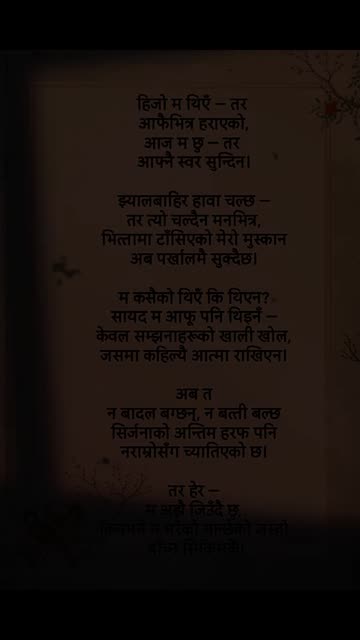 हिजो म थिएँ — तर
आफैभित्र हराएको,
आज म छु — तर
आफ्नै स्वर सुन्दिन।
झ्यालबाहिर हावा चल्छ —
तर त्यो चल्दैन मनभित्र,
भित्तामा टाँसिएको मेरो मुस्कान
अब पर्खालमै सुक्दैछ।
म कसैको थिएँ कि थिएन?
सायद म आफू पनि थिइनँ —
केवल सम्झनाहरूको खाली खोल,
जसमा कहिल्यै आत्मा राखिएन।
अब त
न बादल बग्छन्, न बत्ती बल्छ
सिर्जनाको अन्तिम हरफ पनि
नराम्रोसँग च्यातिएको छ।
तर हेर —
म अझै जिउँदै छु,